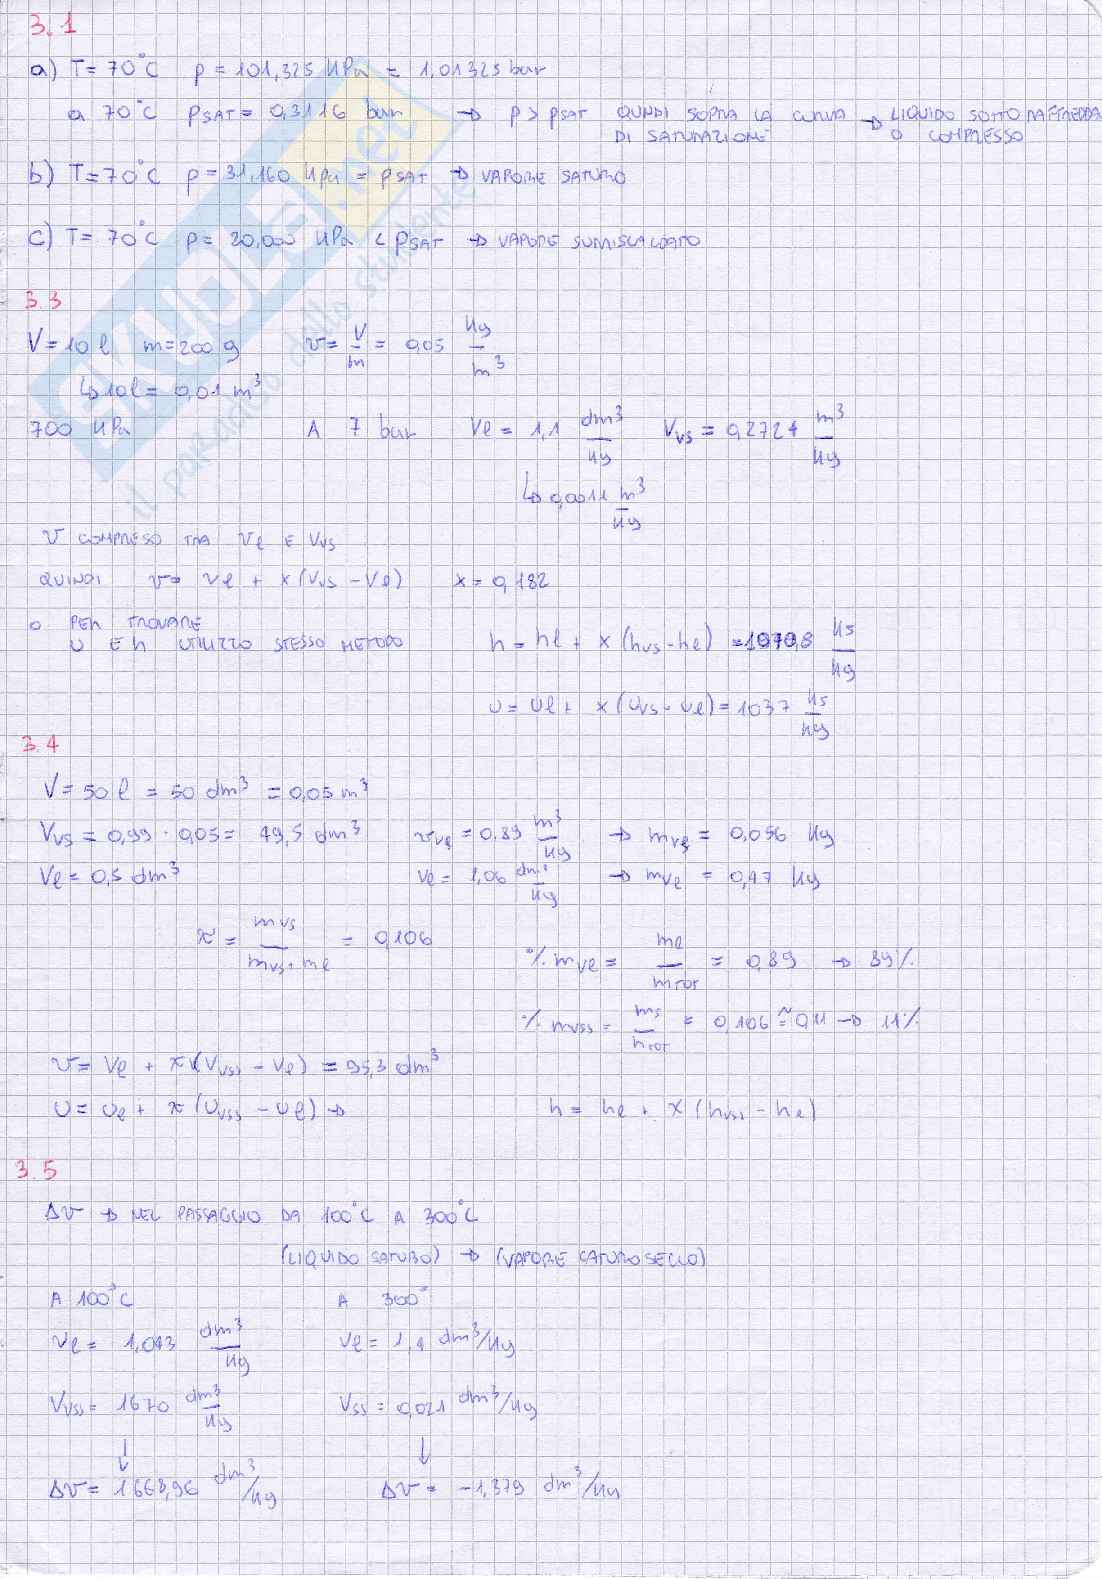 3.1
a) T = 70°C p = 101,325 kPa = 1,01325 bar
a 70°C pSAT = 0,3116 bar → p > pSAT QUINDI SOPRA LA CURVA DI SATURAZIONE → LIQUIDO SOTTORAFFREDDA O COMPRESSO
b) T = 70°C p = 31,160 kPa = pSAT → VAPORE SATURO
c) T = 70°C p = 20,000 kPa < pSAT → VAPORE SURRISCALDATO
3.3
V = 10 l m = 200 g v = V/m = 0,05 kg/m³
↳ 10 l = 0,01 m³
700 kPa A 7 bar Vl = 1,1 dm³/kg Vvs = 0,2727 m³/kg
↳ 0,0011 m³/kg
v COMPRESO TRA Vl E Vvs
QUINDI v = vl + x(Vvs - Vl) x = 0,182
o PER TROVARE
U E h UTILIZZO STESSO METODO h = hl + x (hvs - hl) = 1070,8 kJ/kg
U = Ul + x (Uvs - Ul) = 1037 kJ/kg
3.4
V = 50 l = 50 dm³ = 0,05 m³
Vvs = 0,99 · 0,05 = 49,5 dm³ = 0,89 m³/kg → = 0,056 kg
Vl = 0,5 dm³ Vl = 1,06 dm³/kg → mvl = 0,47 kg
x = mvs/(mvs + ml) = 0,106 % mvl = ml/mTOT = 0,89 → 89%
% mvss = ms/mTOT = 0,106 ≅ 0,11 → 11%
v = Vl + x (Vvss - Vl) = 95,3 dm³
U = Ul + x (Uvss - Ul) → h = hl + x (hvss - hl)
3.5
Δv → NEL PASSAGGIO DA 100°C A 300°C
(LIQUIDO SATURO) → (VAPORE SATURO SECCO)
A 100°C A 300°
Vl = 1,043 dm³/kg Vl = 1,4 dm³/kg
Vvss = 1670 dm³/kg Vss = 0,021 dm³/kg
↓ ↓
Δv = 1668,96 dm³/kg Δv = -1,379 dm³/kg
SKUOLA.net
il paradiso dello studente